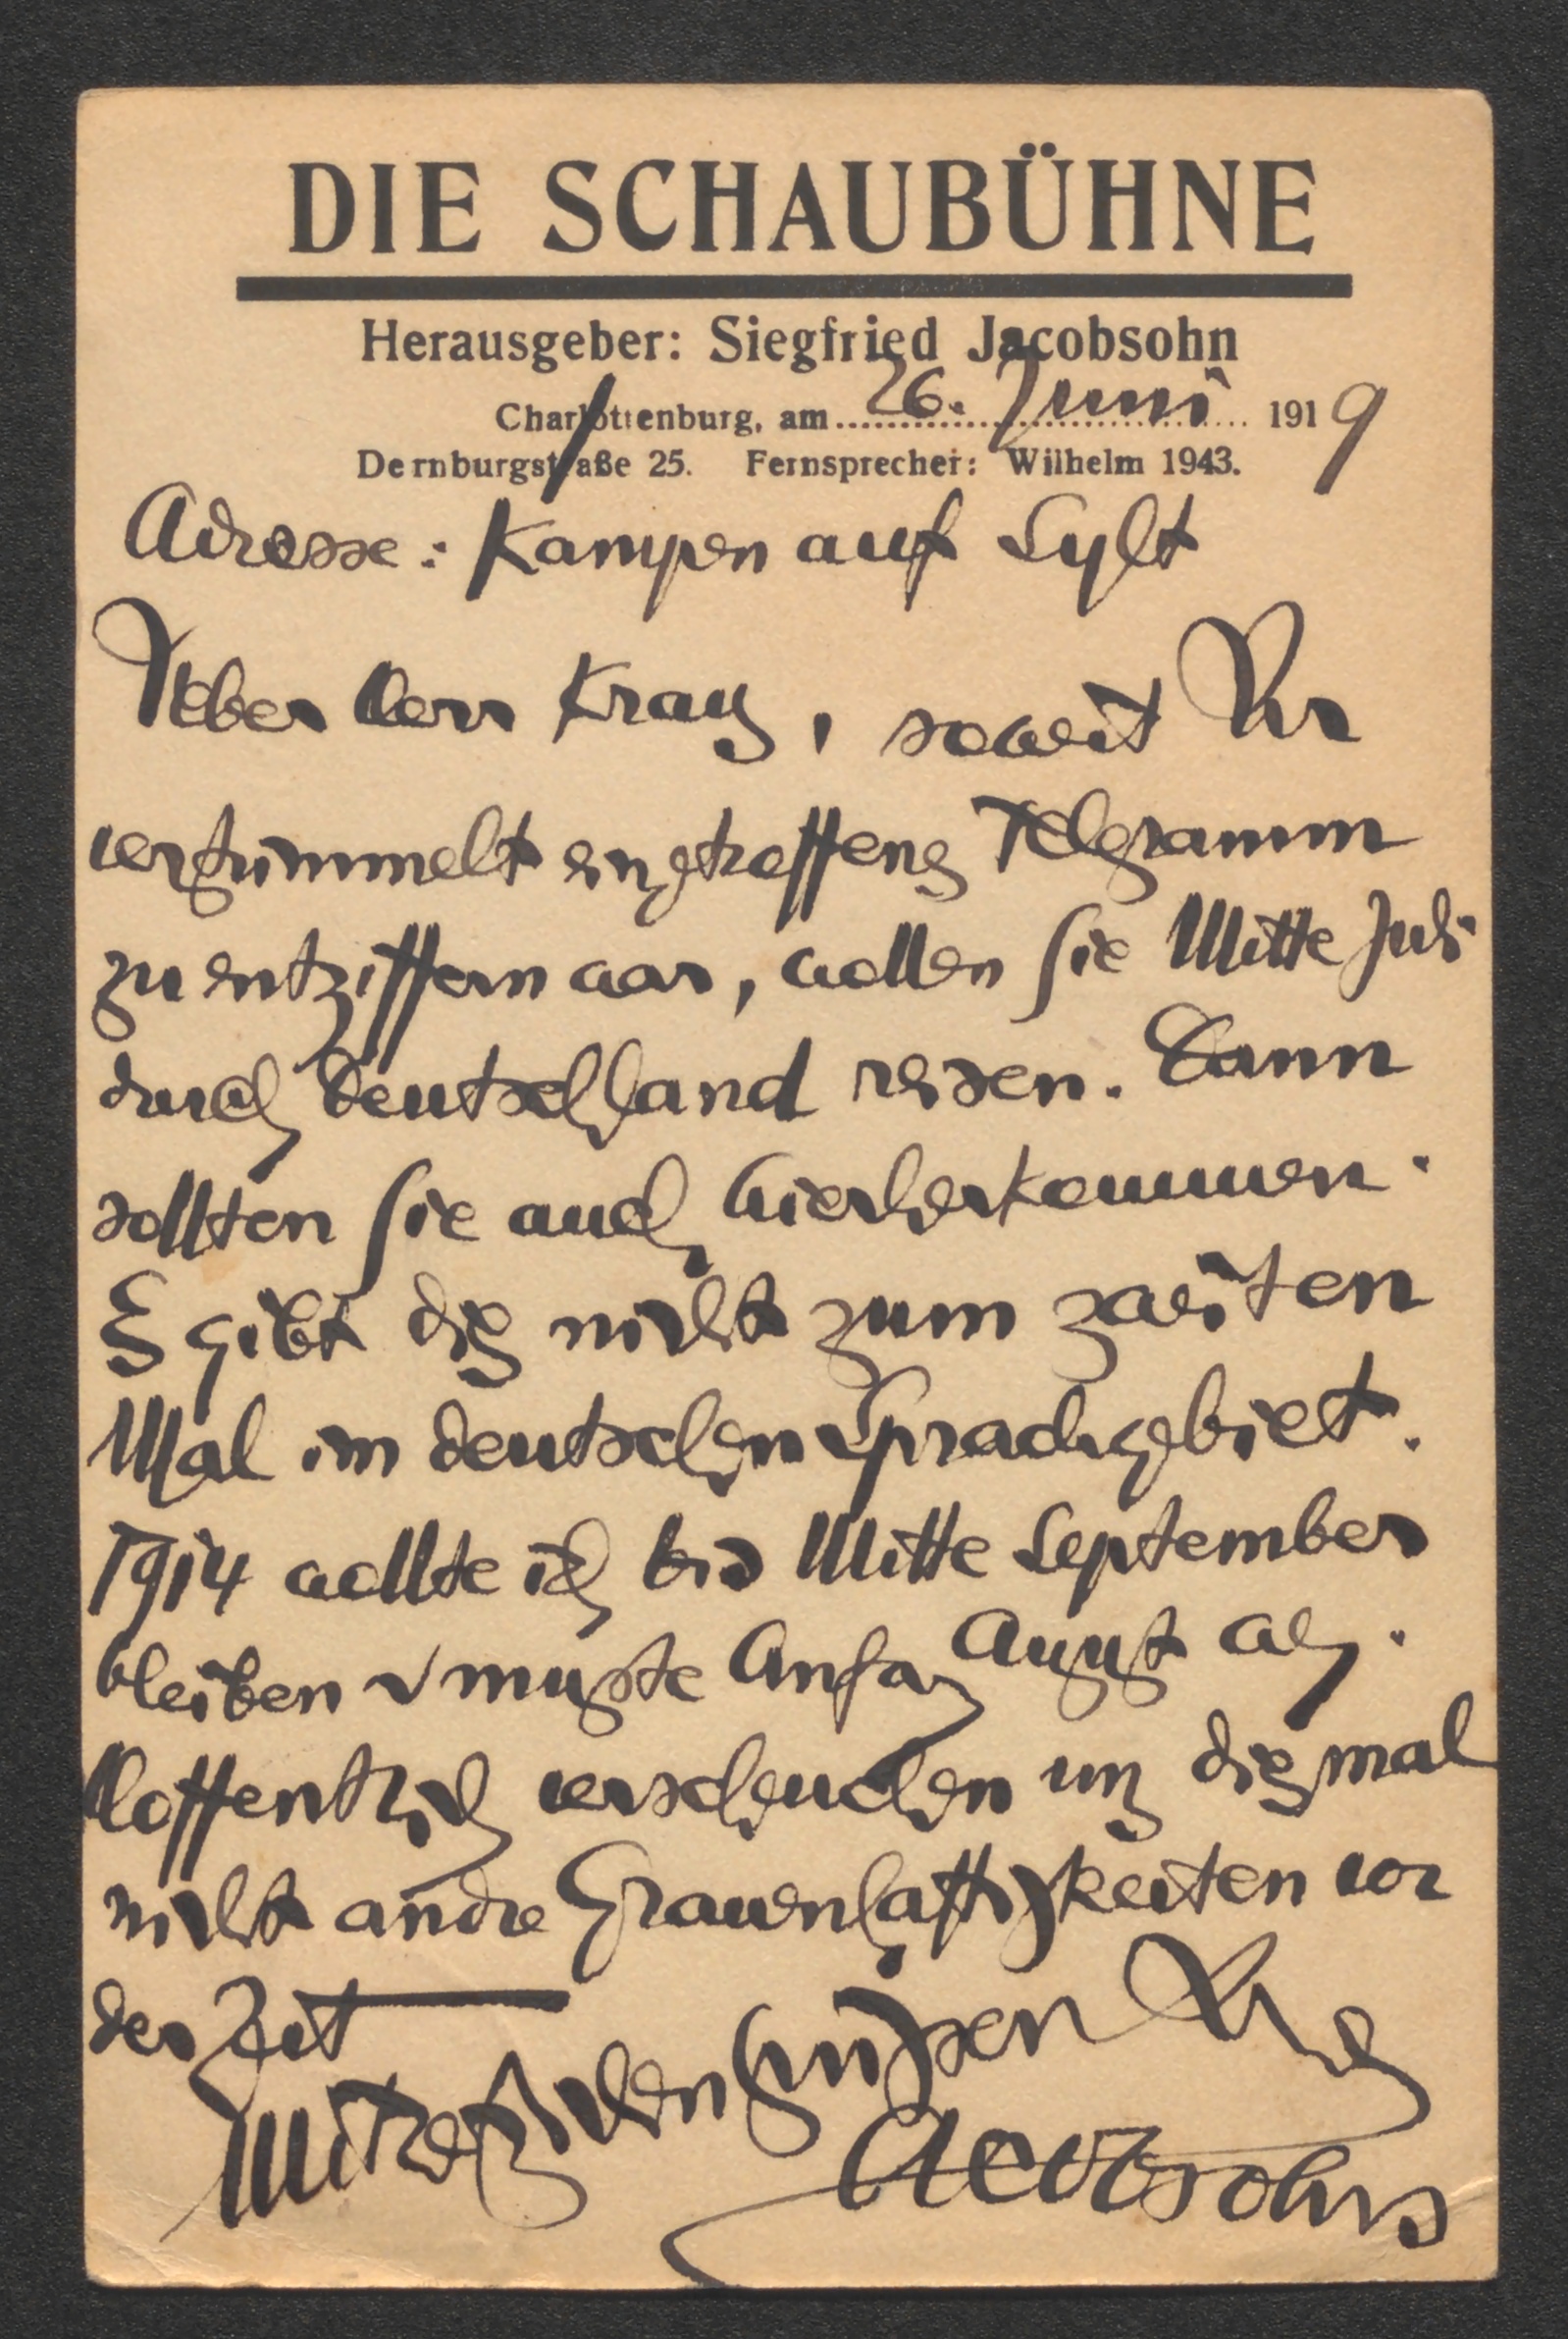 DIE SCHAUBÜHNE
Herausgeber: Siegfried Jacobsohn
Charlottenburg, am 26. Juni 1919
Dernburgstraße 25. Fernsprecher: Wilhelm 1943.
Adresse: Kampen auf Sylt
Lieber Herr Kraus, soweit Ihr
verstümmelt eingetroffenes Telegramm
zu entziffern war, wollen Sie Mitte Juli
durch Deutschland reisen. Dann
sollten Sie auch hierherkommen.
Es gibt dies nicht zum zweiten
Mal im deutschen Sprachgebiet.
1914 wollte ich bis Mitte September
bleiben u mußte Anfang August weg.
Hoffentlich verscheuchen uns diesmal
nicht andre Grauenhaftigkeiten vor
der Zeit
Mit herzlichen Grüßen Ihr
Jacobsohn